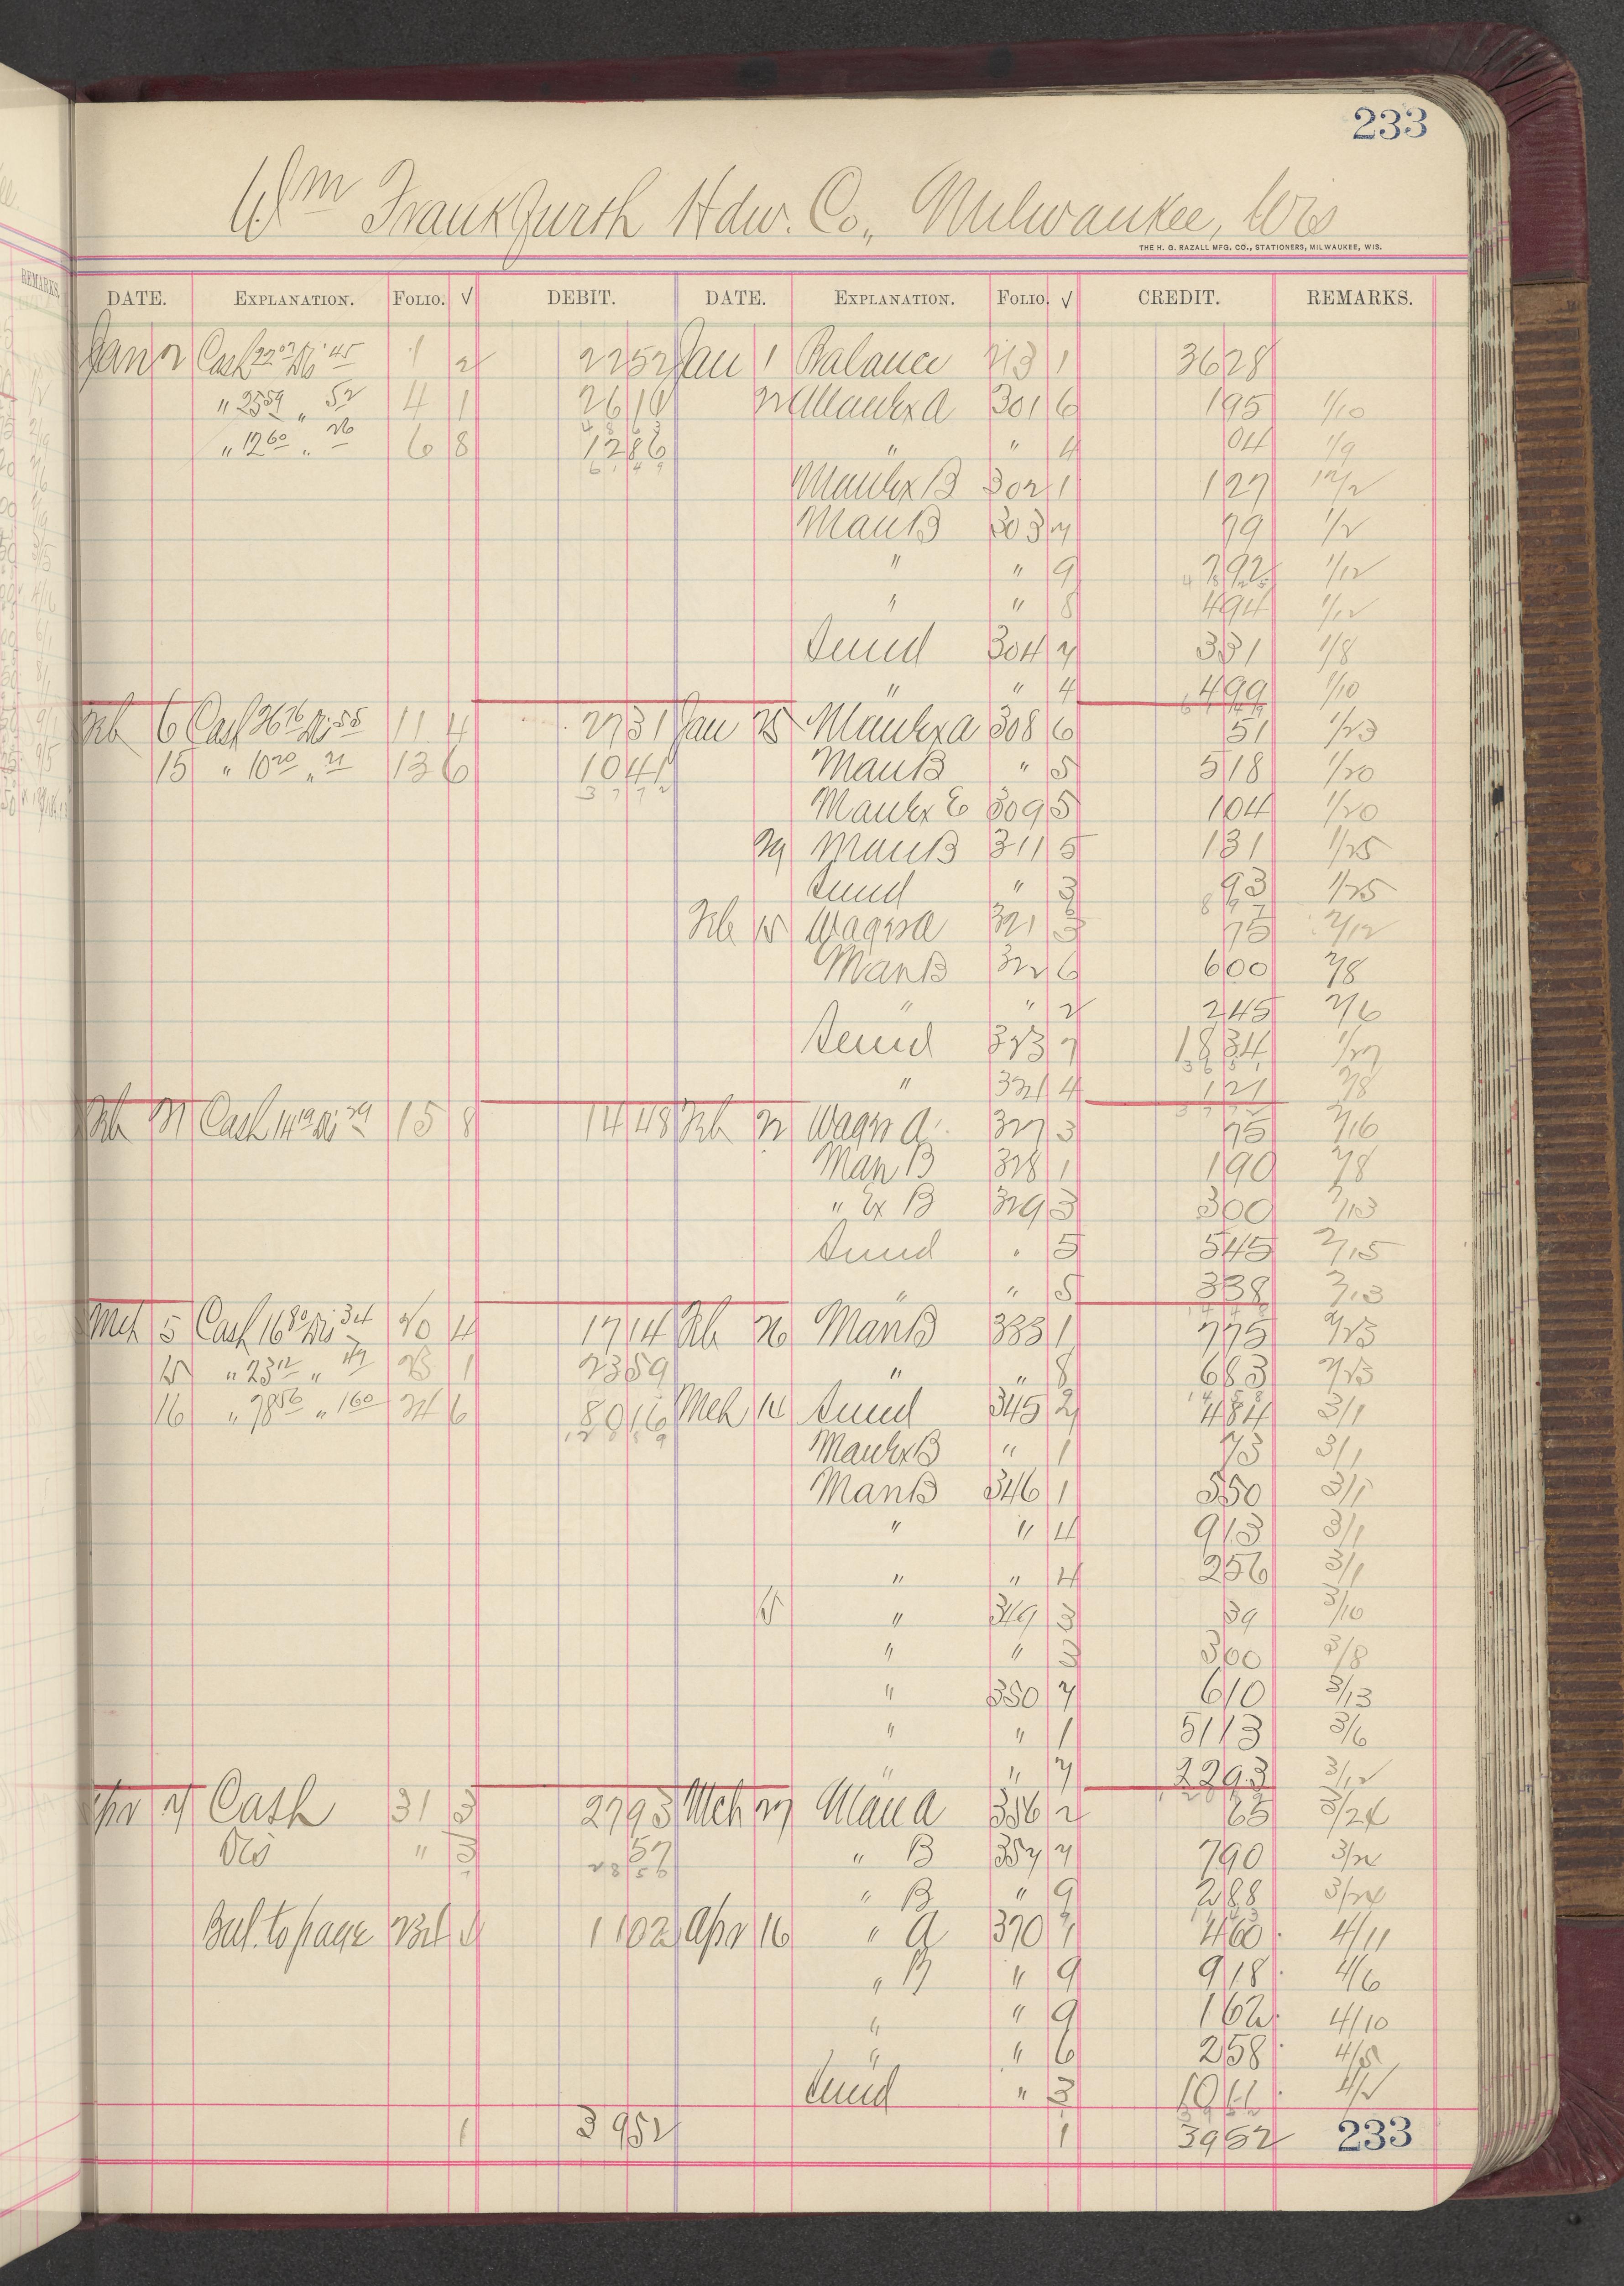 233
Wm Frankfurth Hdw. Co., Milwaukee, Wis
THE H. G. RAZALL MFG. CO., STATIONERS, MILWAUKEE, WIS.
REMARKS.
DATE. EXPLANATION. FOLIO. √ DEBIT. DATE. EXPLANATION. FOLIO. √ CREDIT. REMARKS.
Jan 2 Cash 22 07 Dis 45 1 2 22 52 Jan 1 Balance 213 1 36 28
" 25 59 " 52 4 1 26 11 Man Ex A 301 6 1 95 1/10
" 12 60 " 26 6 8 12 86 " " 4 04 1/9
Man Ex B 302 1 1 27 12/2
Man B 303 7 79 1/2
" " 9 7 92 1/12
" " 8 4 94 1/12
Sund 304 7 3 31 1/8
" " 4 4 99 1/10
Feb 6 Cash 26 76 Dis 55 11 4 27 31 Jan 25 Man Ex A 308 6 51 1/23
15 " 10 20 " 21 13 6 10 41 Man B " 5 5 18 1/20
Man Ex E 309 5 1 04 1/20
29 Man B 311 5 1 31 1/25
Sund " 3 93 1/25
Feb 15 Wagns A 321 3 75 2/12
Man B 322 6 6 00 2/8
" " 2 2 45 2/6
Sund 323 7 18 34 1/27
" 321 4 1 21 2/8
Feb 21 Cash 14 19 Dis 29 15 8 14 48 Feb 22 Wagns A 327 3 75 2/16
Man B 328 1 1 90 2/8
" Ex B 329 3 3 00 2/13
Sund " 5 5 45 2/15
" " 5 3 38 2/13
Mch 5 Cash 16 80 Dis 34 20 4 17 14 Feb 26 Man B 333 1 7 75 2/23
15 " 23 12 " 47 23 1 23 59 " " 8 6 83 2/23
16 " 78 56 " 1 60 24 6 80 16 Mch 14 Sund 345 2 4 84 3/1
Man Ex B " 1 73 3/1
Man B 346 1 5 50 3/1
" " 4 9 13 3/1
" " 4 2 56 3/1
15 " 349 3 39 3/10
" " 3 3 00 3/8
" 350 7 6 10 3/13
" " 1 51 13 3/6
" " 7 22 93 3/12
Apr 4 Cash 31 3 27 93 Mch 27 Man A 356 2 65 3/24
Dis " 3 57 " B 357 7 7 90 3/24
" B " 9 2 88 3/24
Bal. to page 234 11 02 Apr 16 " A 370 7 4 60 4/11
" B " 9 9 18 4/6
" " 9 1 62 4/10
" " 6 2 58 4/5
Sund " 3 10 11 4/2
1 39 52 1 39 52 233